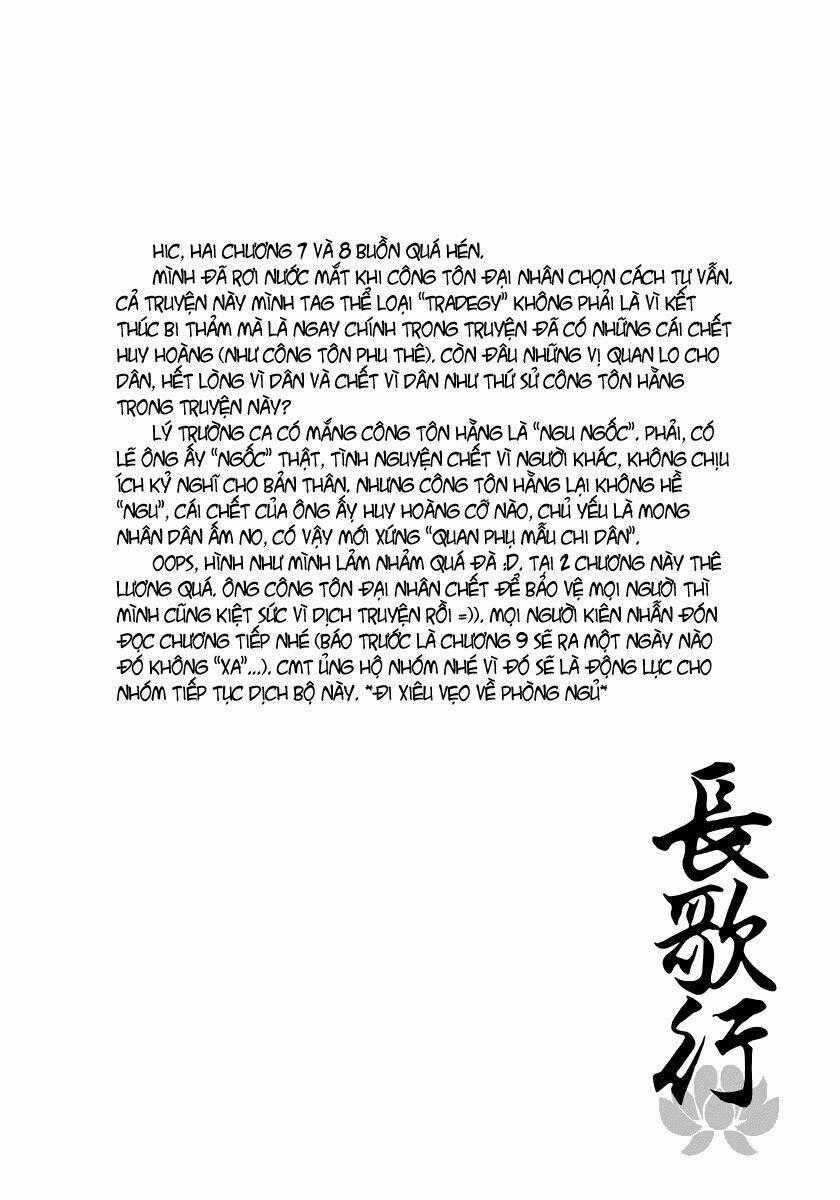 HIC, HAI CHƯƠNG 7 VÀ 8 BUỒN QUÁ HÉN.
MÌNH ĐÃ RƠI NƯỚC MẮT KHI CÔNG TÔN ĐẠI NHÂN CHỌN CÁCH TỰ VẪN.
CẢ TRUYỆN NÀY MÌNH TAG THỂ LOẠI "TRADEGY" KHÔNG PHẢI LÀ VÌ KẾT
THÚC BI THẢM MÀ LÀ NGAY CHÍNH TRONG TRUYỆN ĐÃ CÓ NHỮNG CÁI CHẾT
HUY HOÀNG (NHƯ CÔNG TÔN PHU THÊ). CÒN ĐÂU NHỮNG VỊ QUAN LO CHO
DÂN, HẾT LÒNG VÌ DÂN VÀ CHẾT VÌ DÂN NHƯ THỨ SỬ CÔNG TÔN HẰNG
TRONG TRUYỆN NÀY?
LÝ TRƯỜNG CA CÓ MẮNG CÔNG TÔN HẰNG LÀ "NGU NGỐC". PHẢI, CÓ
LẼ ÔNG ẤY "NGỐC" THẬT, TÌNH NGUYỆN CHẾT VÌ NGƯỜI KHÁC, KHÔNG CHỊU
ÍCH KỶ NGHĨ CHO BẢN THÂN. NHƯNG CÔNG TÔN HẰNG LẠI KHÔNG HỀ
"NGU", CÁI CHẾT CỦA ÔNG ẤY HUY HOÀNG CỠ NÀO, CHỦ YẾU LÀ MONG
NHÂN DÂN ẤM NO, CÓ VẬY MỚI XỨNG "QUAN PHỤ MẪU CHI DÂN".
OOPS, HÌNH NHƯ MÌNH LẢM NHẢM QUÁ ĐÀ :D. TẠI 2 CHƯƠNG NÀY THÊ
LƯƠNG QUÁ. ÔNG CÔNG TÔN ĐẠI NHÂN CHẾT ĐỂ BẢO VỆ MỌI NGƯỜI THÌ
MÌNH CŨNG KIỆT SỨC VÌ DỊCH TRUYỆN RỒI =)). MỌI NGƯỜI KIÊN NHẪN ĐÓN
ĐỌC CHƯƠNG TIẾP NHÉ (BÁO TRƯỚC LÀ CHƯƠNG 9 SẼ RA MỘT NGÀY NÀO
ĐÓ KHÔNG "XA"...). CMT ỦNG HỘ NHÓM NHÉ VÌ ĐÓ SẼ LÀ ĐỘNG LỰC CHO
NHÓM TIẾP TỤC DỊCH BỘ NÀY. *ĐI XIÊU VẸO VỀ PHÒNG NGỦ*
長歌行